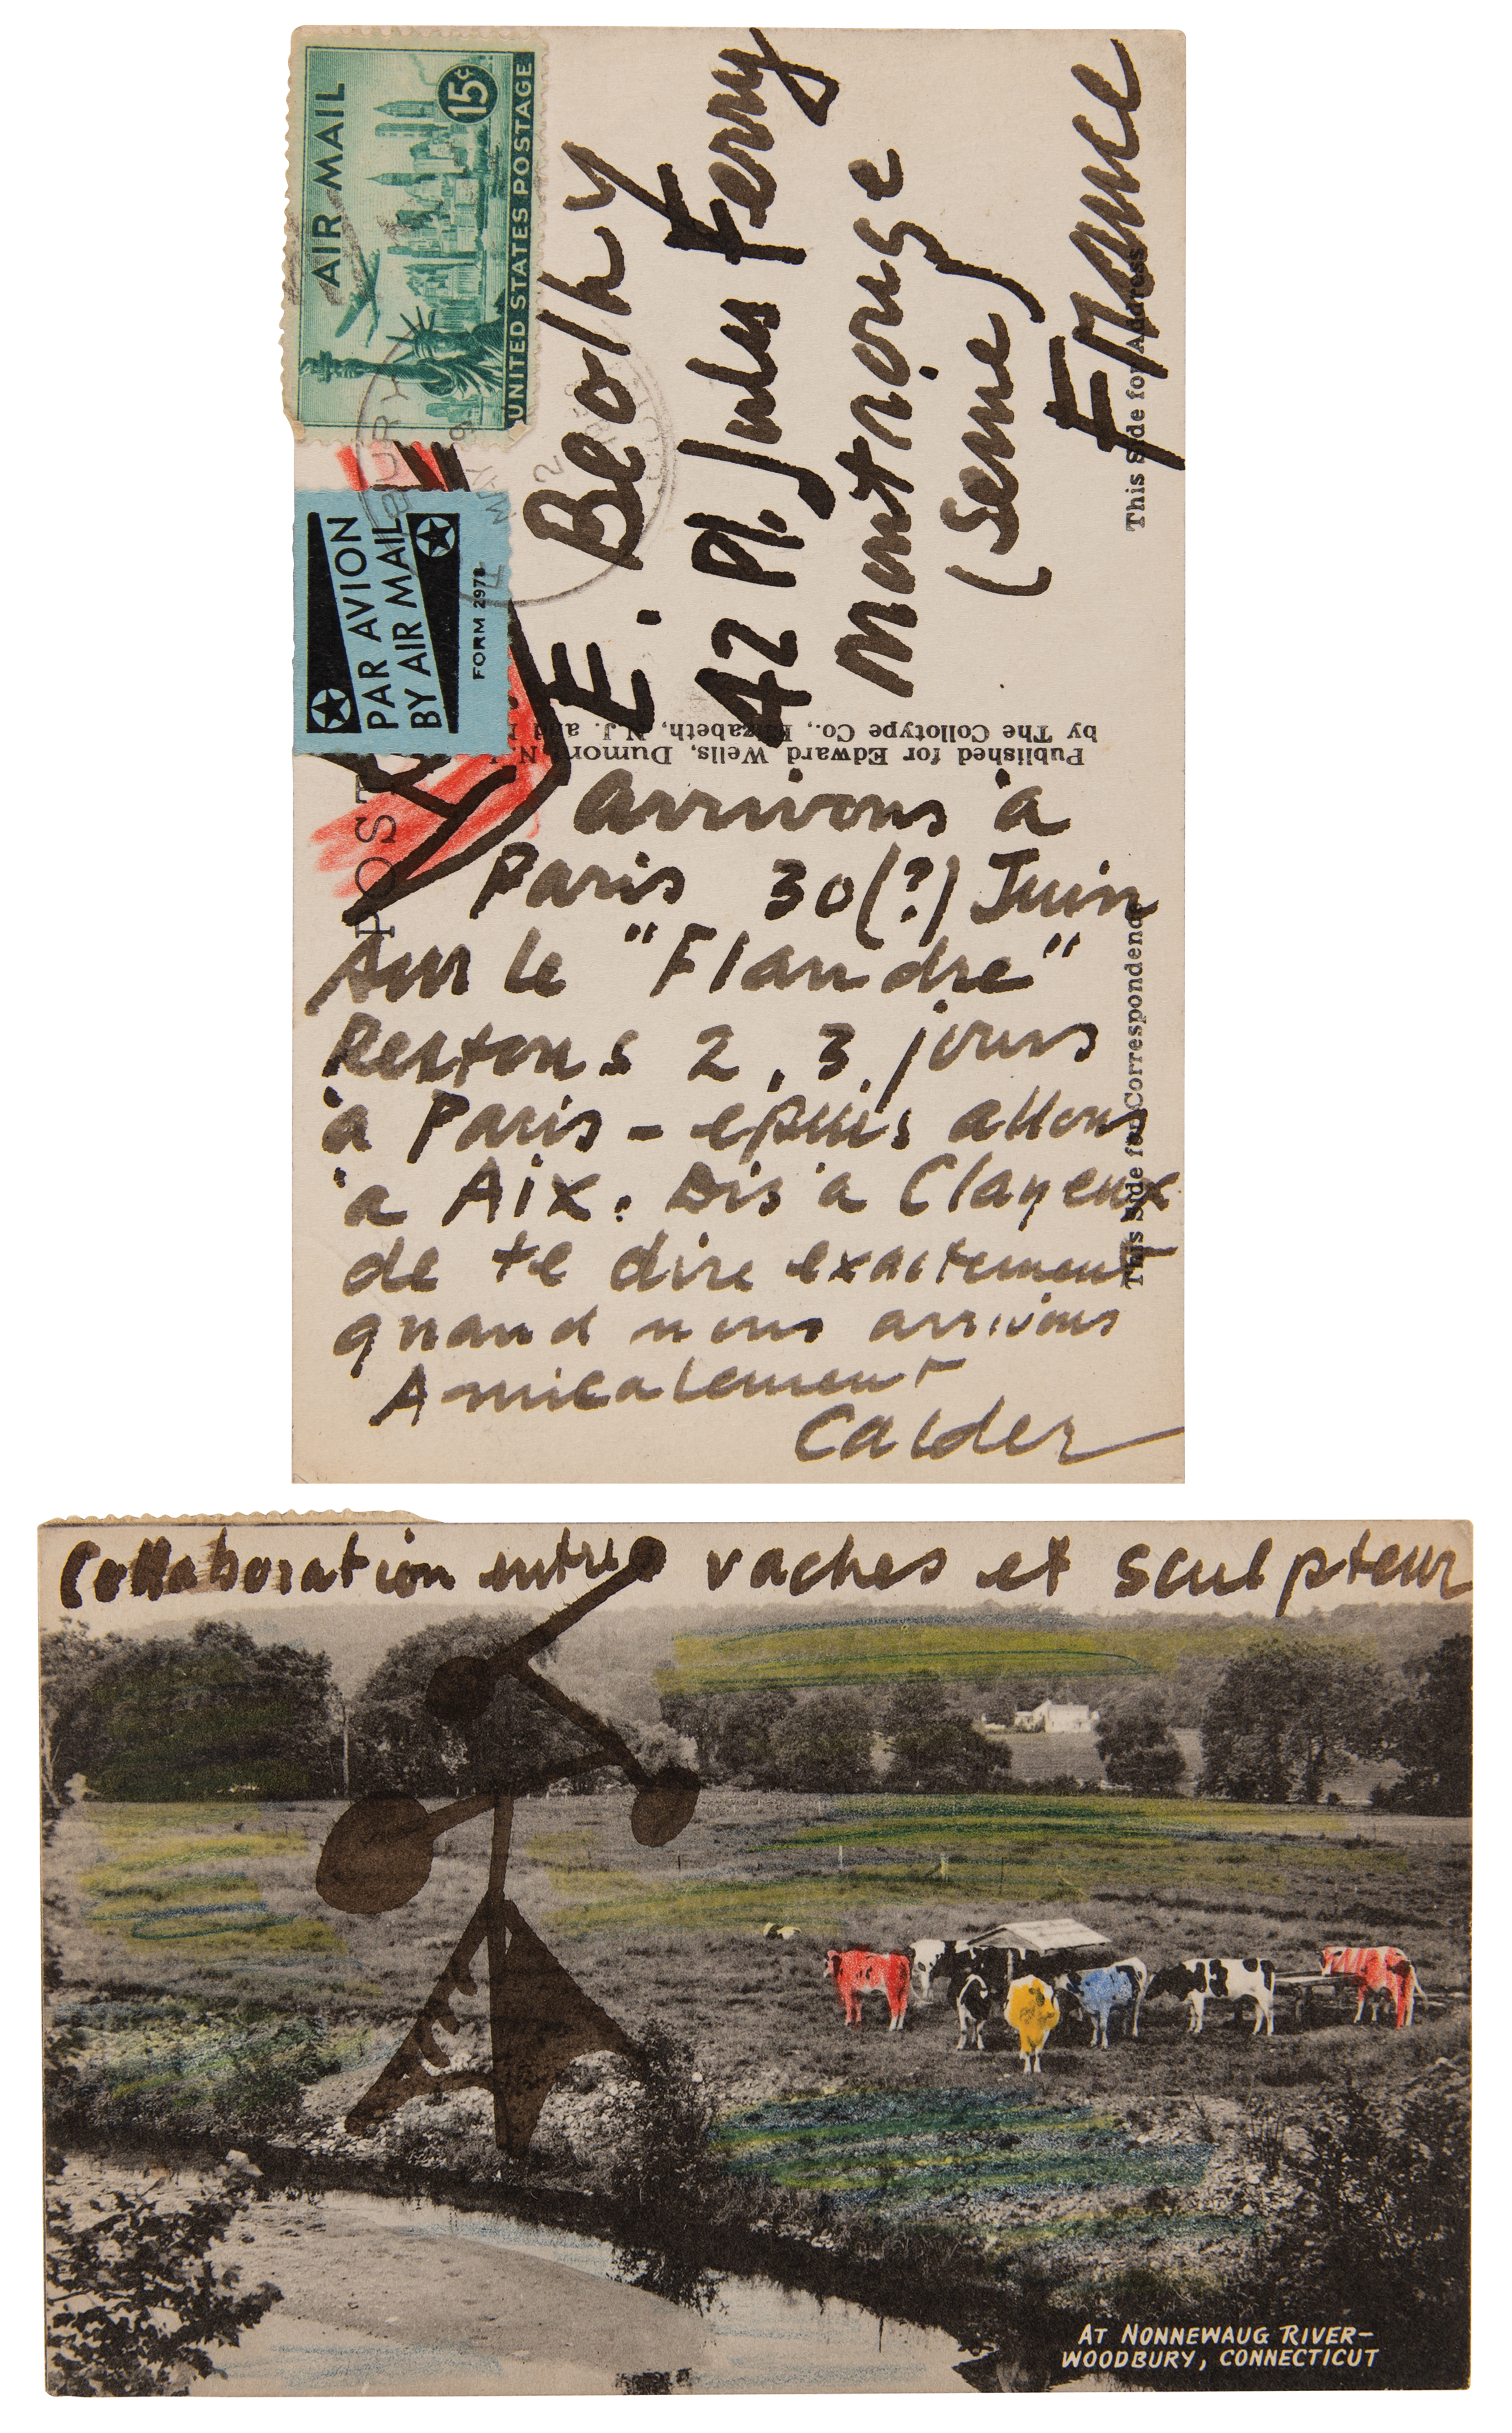 AIR MAIL
15¢
UNITED STATES POSTAGE
PAR AVION
BY AIR MAIL
FORM 2978
BURY
MAY
2
E. Beothy
42 Pl. Jules Ferry
Montrouge
(Seine)
France
This Side for Address
Published for Edward Wells, Dumont, N.
by The Collotype Co., Elizabeth, N.J. and
POST
This Side for Correspondence
arrivons à
Paris 30(?) Juin
sur le "Flandre"
Restons 2, 3 jours
à Paris - epuis allons
à Aix. Dis à Clayeux
de te dire exactement
quand nous arrivons
Amicalement
Calder
Collaboration entre vaches et sculpteur
AT NONNEWAUG RIVER-
WOODBURY, CONNECTICUT